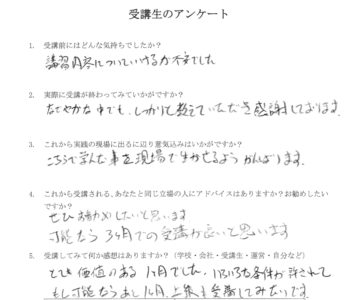 受講生のアンケート
1. 受講前にはどんな気持ちでしたか?
講習内容についていけるか不安でした
2. 実際に受講が終わってみていかがですか?
なごやかな中でも、しっかりと教えていただき感謝しております。
3. これから実践の現場に出るに辺り意気込みはいかがですか?
こちらで学んだ事を現場で生かせるよう がんばります.
4. これから受講される、あなたと同じ立場の人にアドバイスはありますか?お勧めしたい
ですか?
ぜひお勧めしたいと思います
可能なら 3ヶ月での受講が良いと思います
5. 受講してみて何か感想はありますか?(学校・会社・受講生・運営・自分など)
とても価値のある 1ヶ月でした。いろいろな条件が許されて
もし可能ならあと1ヵ月、上級も受講してみたいです